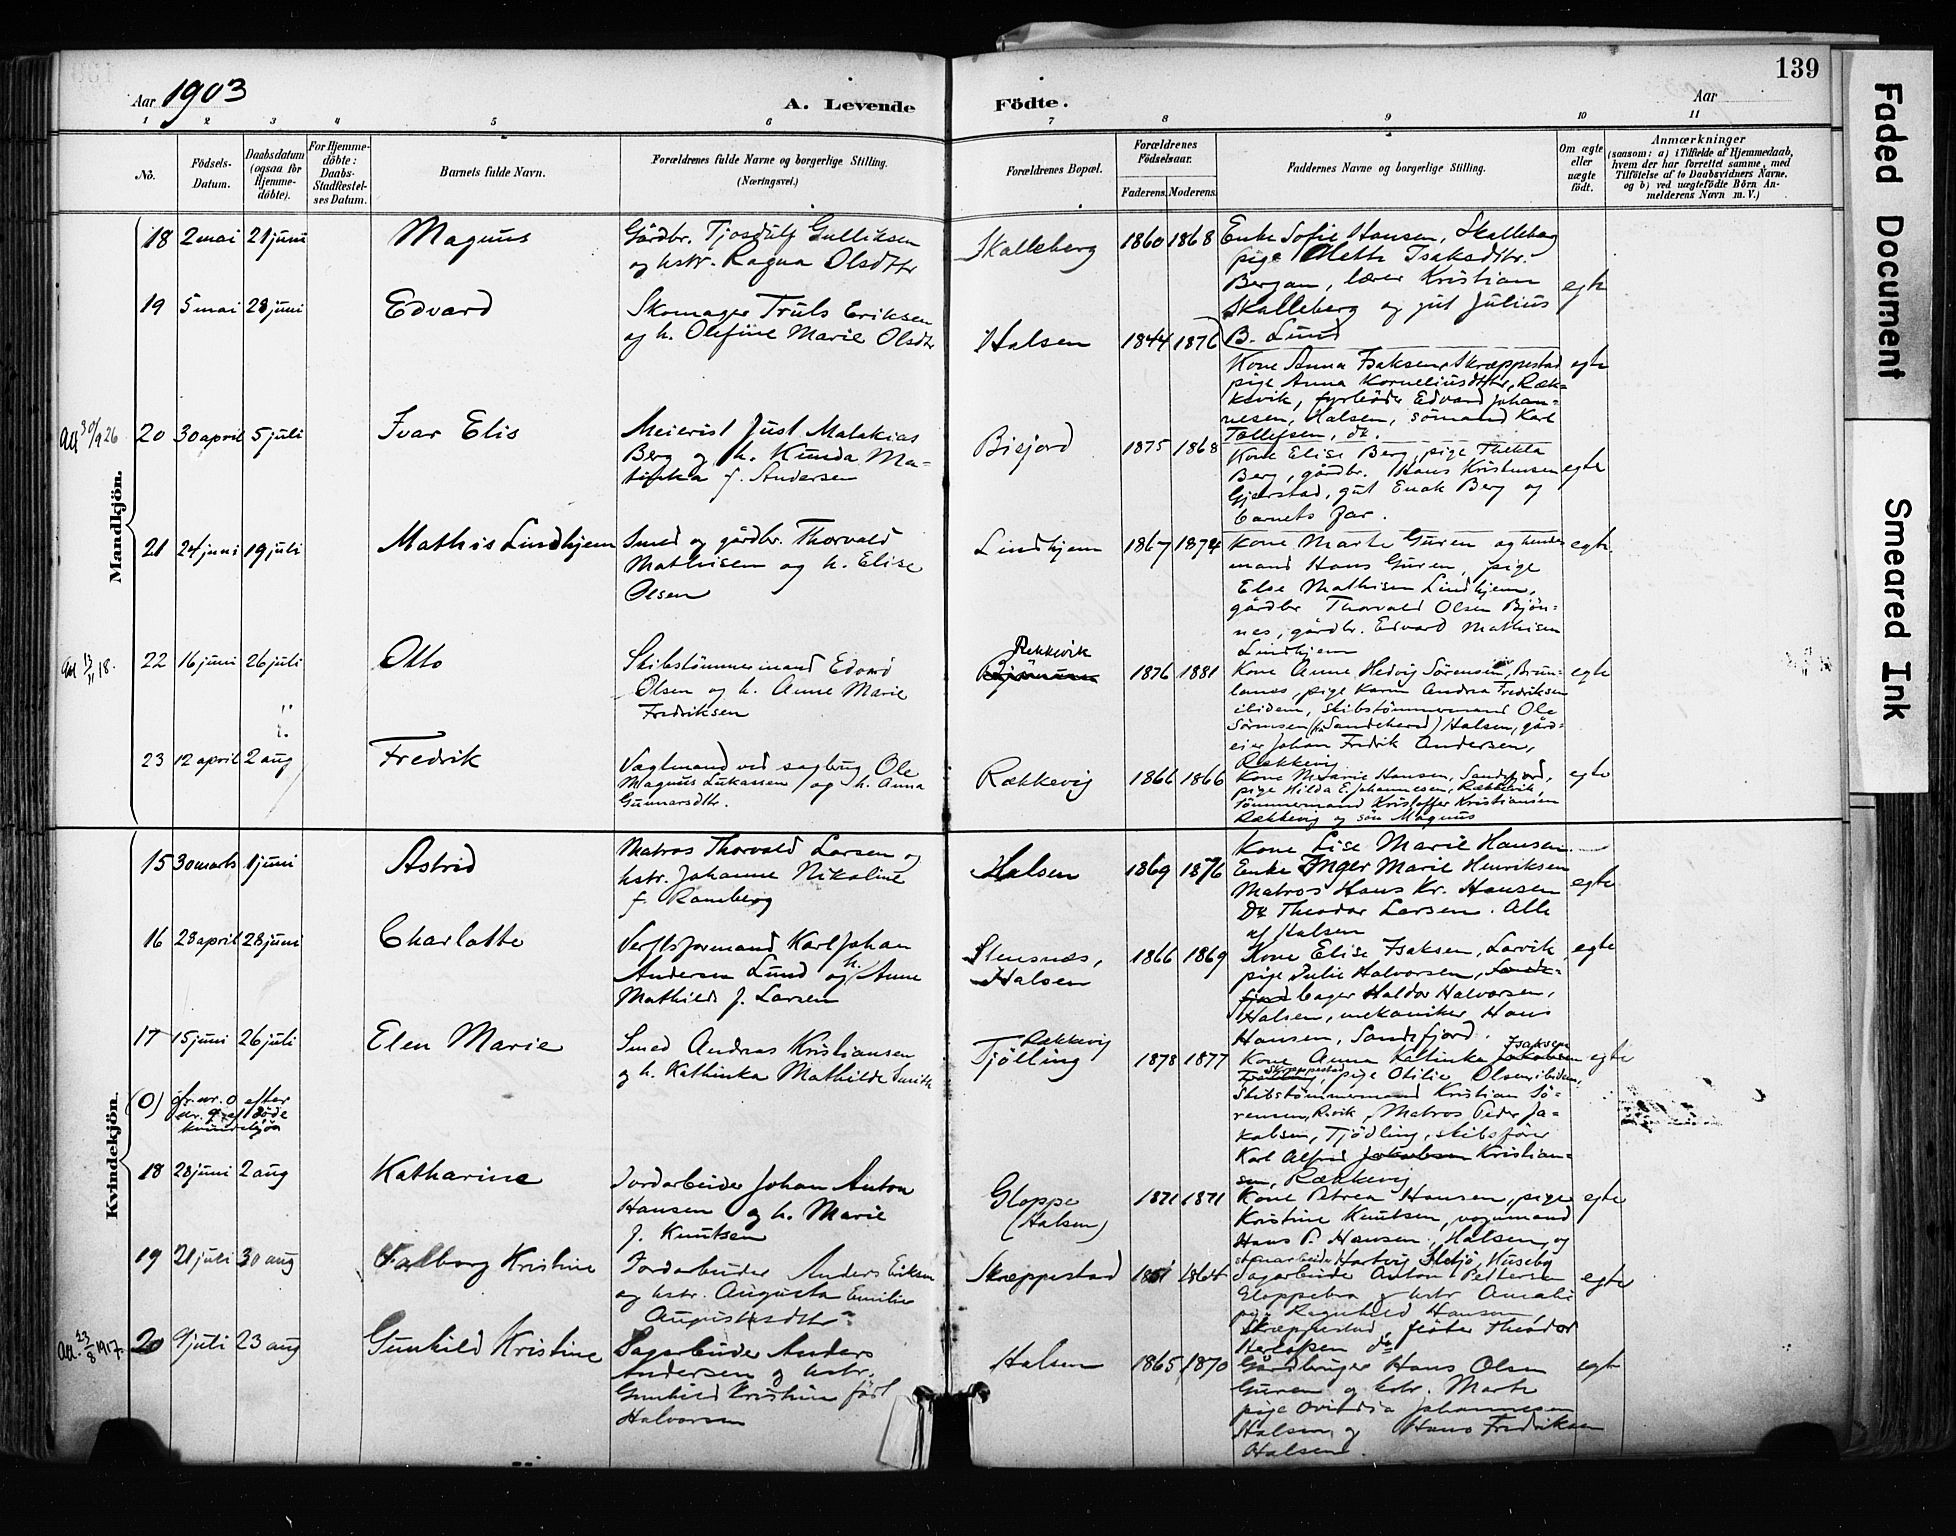 139
Aar 1903
A. Levende Födte.
Aar
1 2 3 4 5 6 7 8 9 10 11
No.
Födsels-Datum.
Daabsdatum (ogsaa for Hjemme-döbte).
For Hjemme-döbte: Daabs-Stadfæstel-ses Datum.
Barnets fulde Navn.
Forældrenes fulde Navne og borgerlige Stilling.
(Næringsvei.)
Forældrenes Bopæl.
Forældrenes Födselsaar.
Faderens. Moderens.
Faddernes Navne og borgerlige Stilling.
Om ægte eller uægte født.
Anmærkninger
(saasom: a) i Tilfælde af Hjemmedaab,
hvem der har forrettet samme, med
Tilföielse af to Daabsvidners Navne.
og b) ved uægtefödte Börn An-
melderens Navn m. V.)
Mandkjön.
18 2 mai 21 juni Magnus
Gårdbr. Tjosdulf Gulliksen
og hstr. Ragna Olsdtr
Skalleberg 1860 1868
Enke Sofie Hansen, Skalleberg
pige Mette Isaksdtr.
Bergan, lærer Kristian
Skalleberg og gut Julius
B. Lund
egte
19 5 mai 28 juni Edvard
Skomager Truls Eriksen
og h. Olefine Marie Olsdtr
Halsen 1844 1876
Kone Anna Isaksen, Skræppestad
pige Anna Korneliusdtter, Ræk-
kevik, fyrböder Edvard Johan-
nesen, Halsen, sömand Karl
Tollefsen, do.
egte
20 30 april 5 juli Ivar Elis
Meierist Just Malakias
Berg og h. Kunda Ma-
f. Andersen
Bisjord 1875 1868
Kone Elise Berg, pige Thekla
Berg, gårdbr. Hans Kristensen
Gjerstad, gut Enok Berg og
barnets far.
egte
21 24 juni 19 juli Mathis Lindhjem
Smed og gårdbr. Thorvald
Mathisen og h. Elise
Olsen
Lindhjem 1867 1874
Kone Marte Guren og hendes
mand Hans Guren, pige
Else Mathisen Lindhjem,
gårdbr Thorvald Olsen Bjön-
nes, gårdbr. Edvard Mathisen
Lindhjem
egte
22 16 juni 26 juli Otto
Skibstömmermand Edvard
Olsen og h. Anne Marie
Fredriksen
Rekkevik
1876 1881
Kone Anne Hedvig Sørensen, Brun-
lanes, pige Karen Andrea Fredriksen
ibidem, skibstömmermand Ole
Sörensen (fra Sandeherad) Halsen, gård-
eier Johan Fredrik Andersen,
Rækkevig
egte
23 12 april 2 aug Fredrik
Vagtmand ved sagbrug Ole
Magnus Lukassen og h. Anna
Gunnarsdtr.
Rækkevig 1866 1866
Kone Hansen, Sandefjord,
pige Hilda E. Johannesen, Rækkevik,
tömmermand Kristoffer Kristiansen
Rækkevig og sön Magnus
egte
Kvindekjön.
15 30 marts 1 juni Astrid
Matros Thorvald Larsen og
hstr. Johanne Nikoline
f. Ramberg
Halsen 1869 1876
Kone Lise Marie Hansen
Enke Inger Marie Henriksen
Matros Hans Kr. Hansen
Do Theodor Larsen. Alle
af Halsen
egte
16 28 april 28 juni Charlotte
Verftsformand Karl Johan
Andersen Lund og h. Anne
Mathilde f. Larsen
Stensnæs,
Halsen 1866 1869
Kone Elise Isaksen, Larvik,
pige Julie Halvorsen, Sande-
fjord bager Haldor Halvorsen,
Halsen, mekaniker Hans
Hansen, Sandefjord.
egte
17 15 juni 26 juli Elen Marie
Smed Andreas Kristiansen
og h. Kathinka Mathilde Smith
Rækkevig
Tjölling 1878 1877
Kone Anna Kathinka Isaksen
Skreppestad, pige Otilie Olsen ibidem,
Skibstömmermand Kristian Sö-
rensen, Matros Peder Ja-
kobsen, Tjödling, skibsförer
Karl Alfred Jakobsen Kristian-
sen, Rækkevig
egte
(0) fr. nr. 0 efter
nr. 9 af döde
kvindekjön
18 28 juni 2 aug Katharine
Jordarbeider Johan Anton
Hansen og h. Marie
f. Knutsen
Gloppe
(Halsen) 1871 1871
Kone Petrea Hansen, pige
Kristine Knutsen, vognmand
Hans P. Hansen, Halsen, og
Hartvig Huseby
egte
19 21 juli 30 aug Valborg Kristine
Jordarbeider Anders Eriksen
og hstr. Augusta Emilie
Augustsdtr
Skreppestad 1864
Sagarbeider Anton Pettersen
Gloppebra og hstr Amalie
pige Ragnhild Hansen,
Skræppestad, Theodor
egte
20 9 juli 23 aug Gunhild Kristine
Sagarbeider Anders
Andersen og hstr.
Gunhild Kristine födt
Halvorsen
Halsen 1865 1870
Gårdbruger Hans Olsen
Guren og hstr. Marte
pige Ovidia Johannesen
Halsen og Hans Fredriksen
Halsen.
egte
Faded Document
Smeared Ink